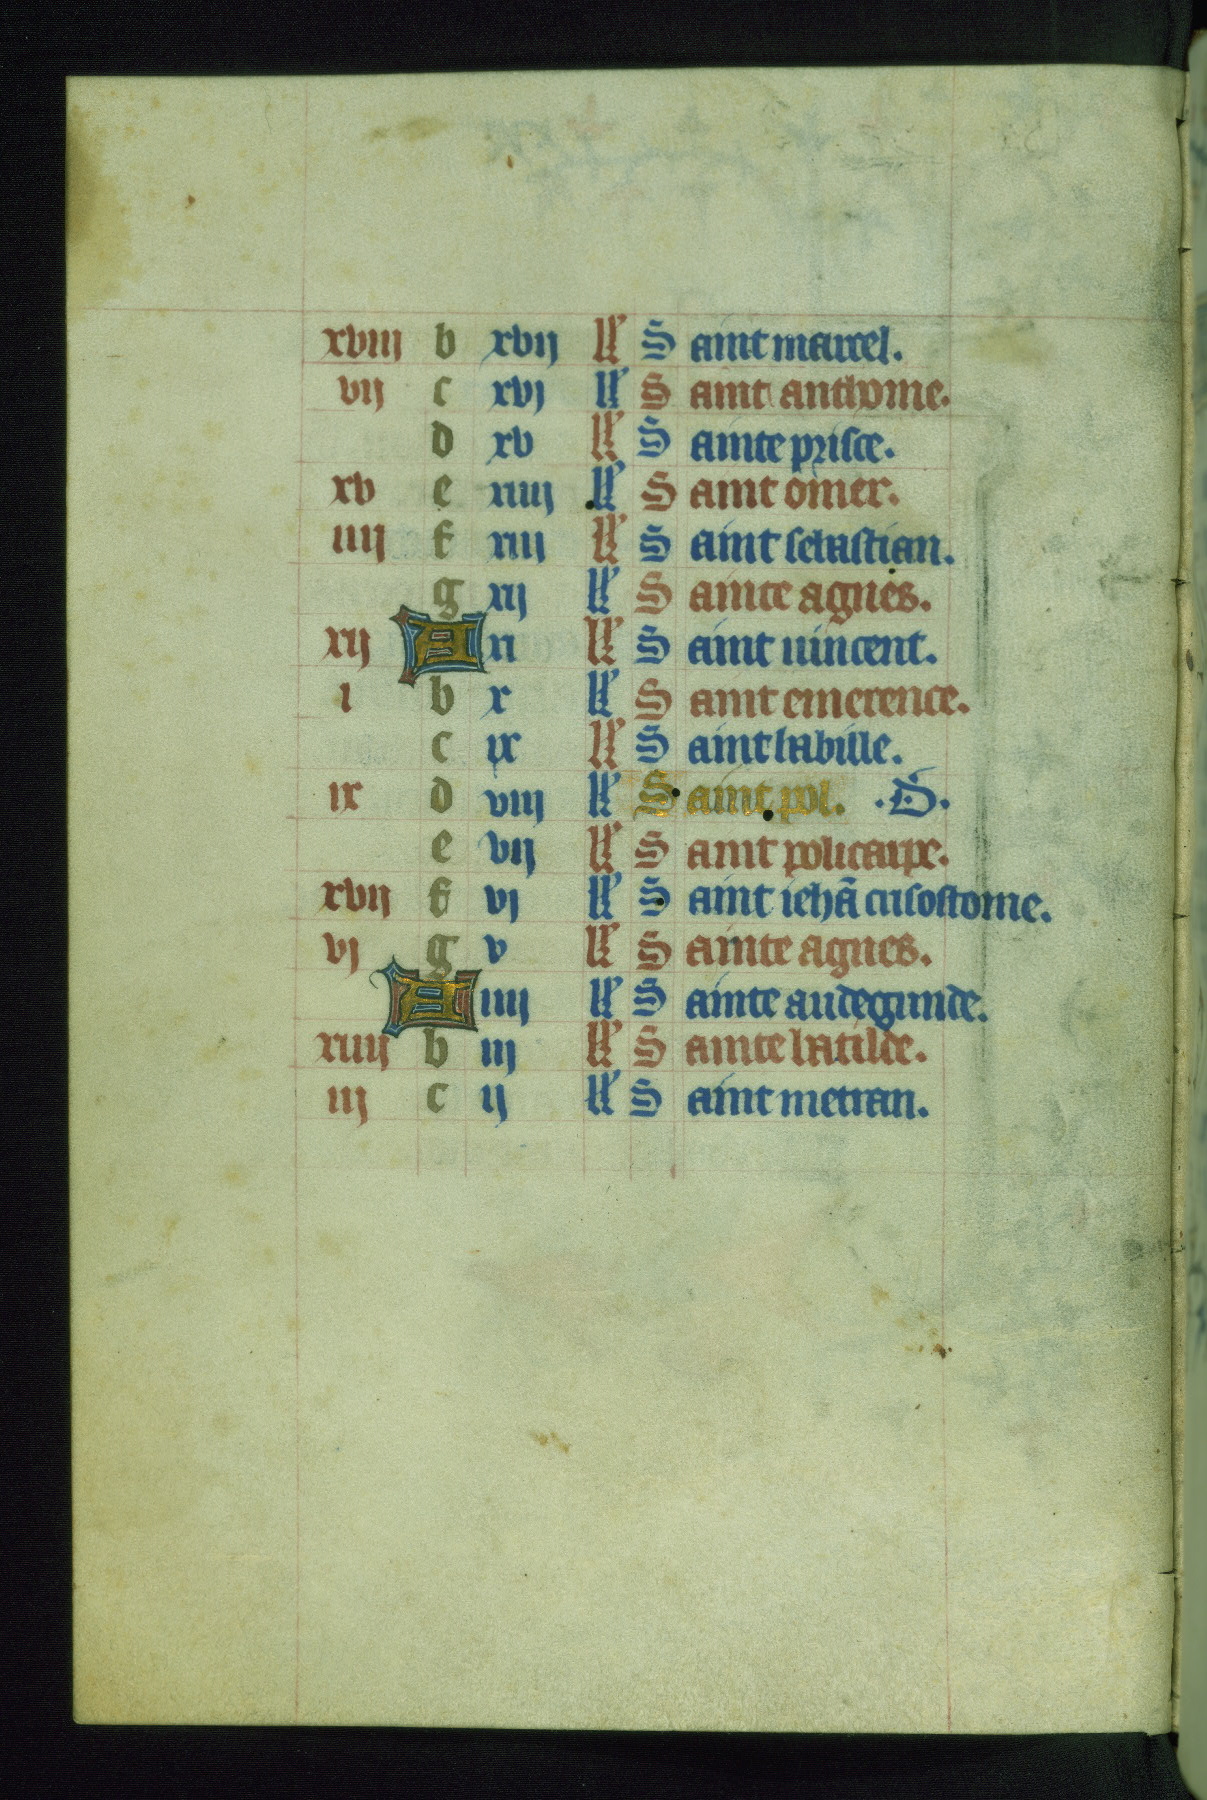 xviii b xvij kl' Saint marcel.
vij c xvj kl' Saint anthoine.
d xv kl' Sainte prisce.
xv e xiiij kl' Saint omer.
iiij f xiii kl' Saint sebastian.
g xij kl' Sainte agnes.
xij A xi kl' Saint uincent.
i b x kl' Saint emerence.
c ix kl' Saint babille.
ix d viij kl' Saint pol. .D.
e vij kl' Saint policarpe.
xvij f vj kl' Saint iehã crisostome.
vj g v kl' Sainte agnes.
A iiij kl' Sainte audegunde.
xiiij b iij kl' Sainte batilde.
iij c ij kl' Saint metran.